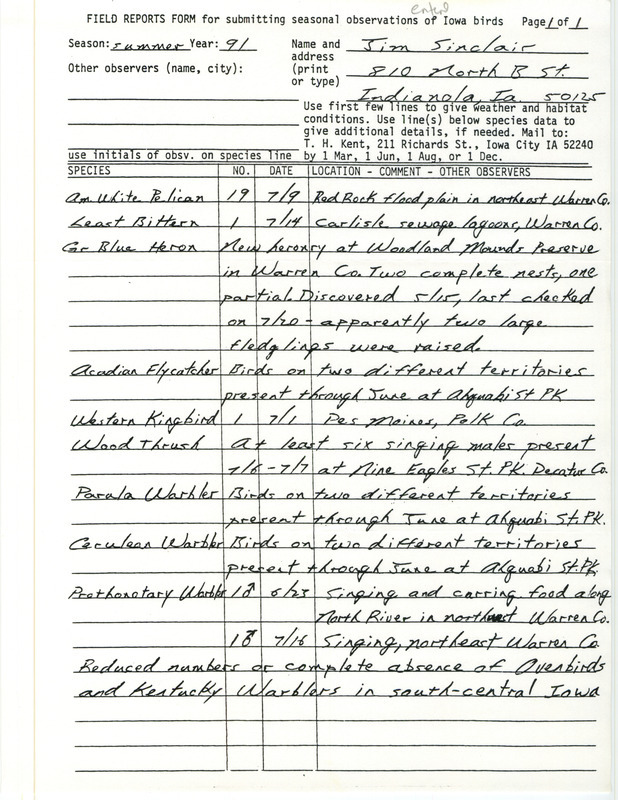 entered
FIELD REPORTS FORM for submitting seasonal observations of Iowa birds Page 1 of 1
Season: summer Year: 91 Name and Jim Sinclair
address
Other observers (name, city): (print 810 North B St.
or type)
Indianola, Ia. 50125
Use first few lines to give weather and habitat
conditions. Use line(s) below species data to
give additional details, if needed. Mail to:
T. H. Kent, 211 Richards St., Iowa City IA 52240
use initials of obsv. on species line by 1 Mar, 1 Jun, 1 Aug, or 1 Dec.
SPECIES NO. DATE LOCATION - COMMENT - OTHER OBSERVERS
Am. White Pelican 19 7/9 Red Rock flood plain in northeast Warren Co.
Least Bittern 1 7/14 Carlisle sewage lagoons, Warren Co.
Gr Blue Heron New heronry at Woodland Mounds Preserve
in Warren Co. Two complete nests, one
partial. Discovered 5/15, last checked
on 7/20 - apparently two large
fledglings were raised.
Acadian Flycatcher Birds on two different territories
present through June at Ahquabi St PK
Western Kingbird 1 7/1 Des Moines, Polk Co.
Wood Thrush At least six singing males present
7/6-7/7 at Nine Eagles St. PK. Decatur Co.
Parula Warbler Birds on two different territories
present through June at Ahquabi St. PK.
Cerulean Warbler Birds on two different territories
present through June at Ahquabi St. PK.
Prothonotary Warbler 1♂ 6/23 Singing and carring food along
North River in Warren Co.
1♂ 7/16 Singing, northeast Warren Co.
Reduced numbers or complete absence of Ovenbirds
and Kentucky Warblers in south-central Iowa